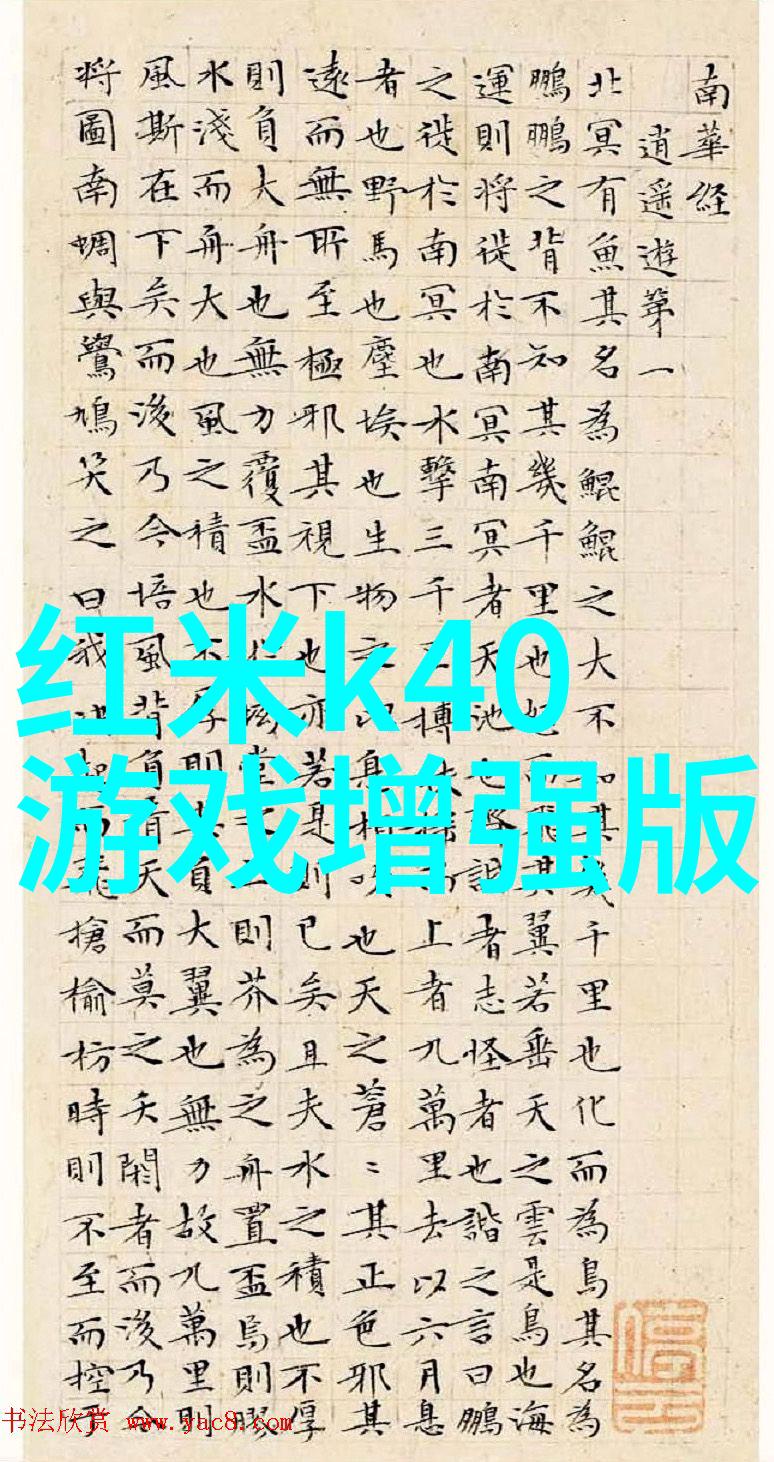 南華経
逍遥遊第一
北冥有魚其名為鯤鯤之大不知其幾千里也化而為鳥其名為
鵬鵬之背不知其幾千里也怒而飛其翼若垂天之雲是鳥也海
運則将徙於南冥南冥者天池也諧者志怪者也諧之言曰鵬
之徙於南冥也水擊三千摶扶上者九萬里去以六月息
者也野馬也塵埃也生物之以息相吹也天之蒼〻其正色邪其
遠而無所至極邪其視下也亦若是則已矣且夫水之積也不厚
則負大舟也無力覆盃水堂則芥為之舟置盃焉則膠
水淺而舟大也風之積也不厚則其負大翼也無力故九萬里則
風斯在下矣而後乃今培風背負青天而莫之夭閼者而後乃今
将圖南蜩與鷽鳩笑之曰我而飛搶榆枋時則不至而控
红米k40
游戏增强版
书法欣赏 www.yac8.com